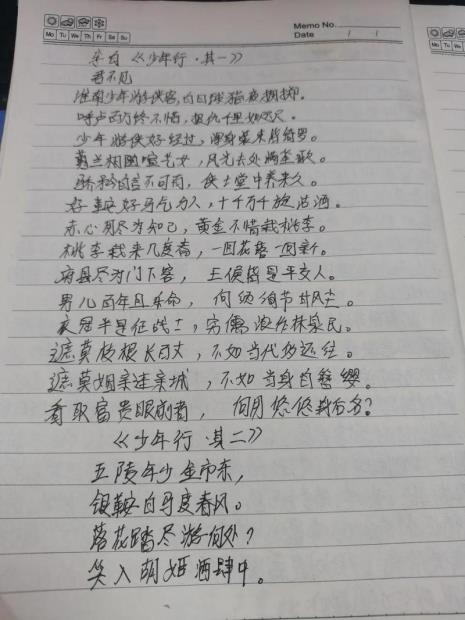 Memo No.
Mo Tu We Th Fr Sa Su
Date / /
李白《少年行·其一》
君不见
淮南少年游侠客,白日球猎夜拥掷。
呼卢百万终不惜,报仇千里如咫尺。
少年游侠好经过,浑身装束皆绮罗。
蕙兰相随喧妓女,风光去处满笙歌。
骄矜自言不可有,侠士堂中养来久。
好鞍好马乞与人,十千五千旋沽酒。
赤心用尽为知己,黄金不惜栽桃李。
桃李栽来几度春,一回花落一回新。
府县尽为门下客,王侯皆是平交人。
男儿百年且乐命,何须徇节甘风尘。
衣冠半是征战士,穷儒浪作林泉民。
遮莫枝根长百丈,不如当代多还往。
遮莫姻亲连帝城,不如当身自簪缨。
看取富贵眼前者,何用悠悠身后名?
《少年行·其二》
五陵年少金市东,
银鞍白马度春风。
落花踏尽游何处?
笑入胡姬酒肆中。